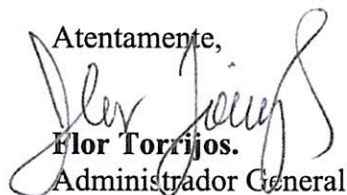 Atentamente,
Flor Torrijos.
Administrador General